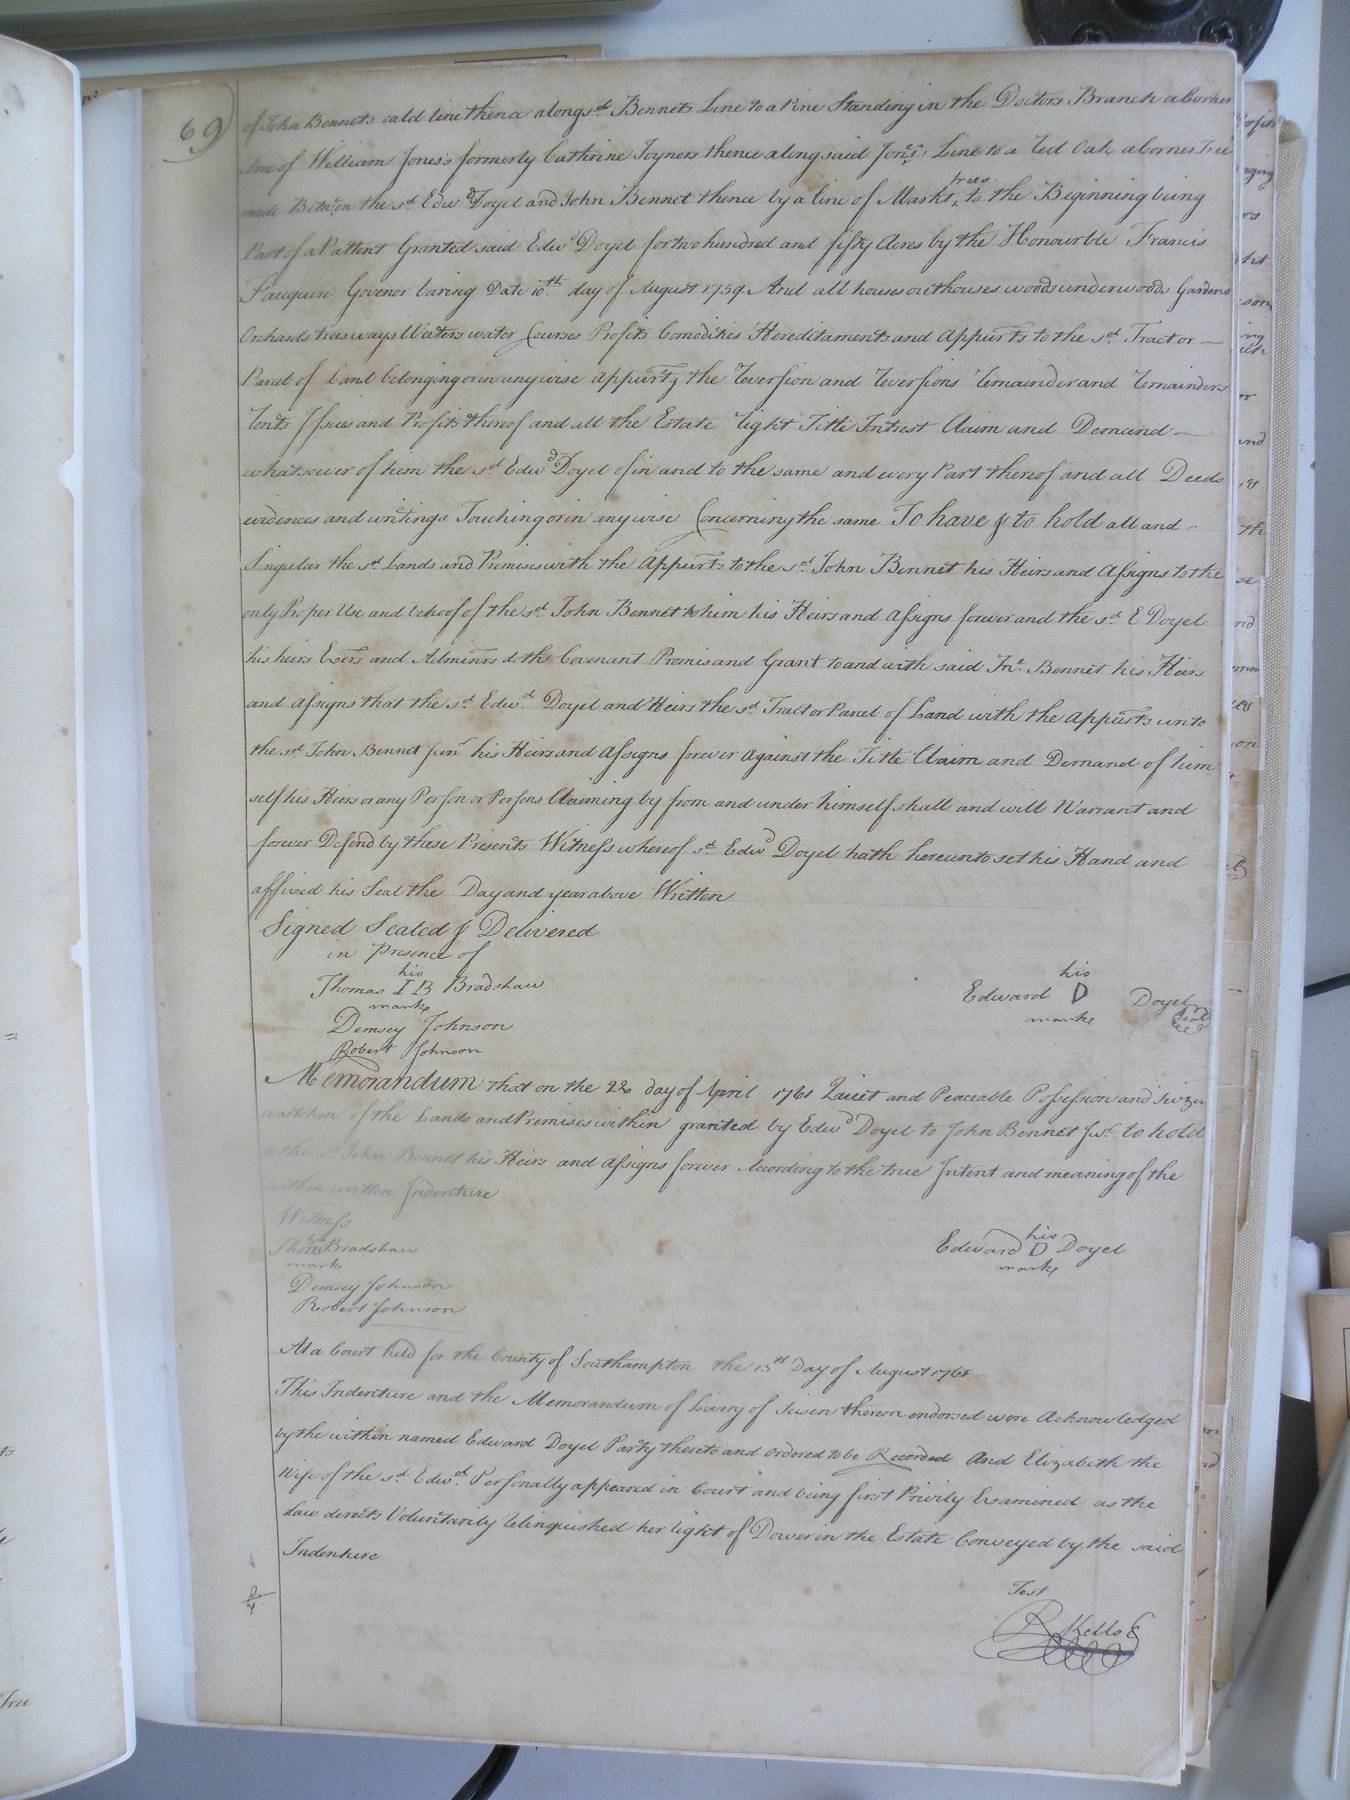 69
of John Bennets oald line thence along sd Bennets Line to a Pine Standing in the Doctors Branch a Corner
tree of William Jones's formerly Cathrine Joyners thence along said Jones's Line to a Red Oak a Corner Tree
made Between the sd Edwd Doyel and John Bennet thence by a line of Markt trees to the Beginning being
Part of a Pattent Granted said Edwd Doyel for two hundred and fifty Acres by the Honourble Francis
Fauquier Govenor baring Date 10th day of August 1759 And all houses outhouses woods underwoods Gardens
Orchards trees ways Waters water Courses Profits Comodities Hereditaments and Appurts to the sd Tract or
Parcel of Land belonging or in any wise Appurtg the Reversion and Reversions Remainder and Remainders
Rents Issues and Profits thereof and all the Estate Right Title Intrest Claim and Demand
whatsoever of him the sd Edwd Doyel of in and to the same and every Part thereof and all Deeds
evidences and writings Touching or in any wise Concerning the same To have & to hold all and
Singular the sd Lands and Premises with the Appurts to the sd John Bennet his Heirs and Assigns to the
only Proper Use and behoof of the sd John Bennet to him his Heirs and Assigns forever and the sd E Doyel
his heirs Exers and Adminrs doth Covenant Promis and Grant to and with said Jno Bennet his Heirs
and Assigns that the sd Edwd Doyel and Heirs the sd Tract or Parcel of Land with the Appurts unto
the sd John Bennet Junr his Heirs and Assigns forever Against the Title Claim and Demand of him
self his Heirs or any Person or Persons Claiming by from and under himself shall and will Warrant and
forever Defend by these Presents Witness whereof sd Edwd Doyel hath hereunto set his Hand and
affixed his Seal the Day and year above Written
Signed Sealed & Delivered
in Presence of
his
Thomas I B Bradshaw
marke
Demsey Johnson
Robert Johnson
his
Edward D Doyel
marke
Seal
Memorandum that on the day of April 1761 Quiet and Peaceable Possession and Seizen
was taken of the Lands and Premises within granted by Edwd Doyel to John Bennet Junr to hold
to the sd John Bennet his Heirs and Assigns forever According to the true Intent and meaning of the
within written Indenture
Witness
Thos Bradshaw
mark
Demsey Johnson
Robert Johnson
his
Edward D Doyel
marke
At a Court held for the County of Southampton the 13th Day of August
This Indenture and the Memorandum of Livery of Seisen thereon endorsed were Acknowledged
by the within named Edward Doyel Party thereto and ordered to be Recorded And Elizabeth the
Wife of the sd Edwd Personally appeared in Court and being first Privily Examined as the
Law directs Voluntarily Relinquished her Right of Dower in the Estate Conveyed by the said
Indenture
Test
R Kello
Tree